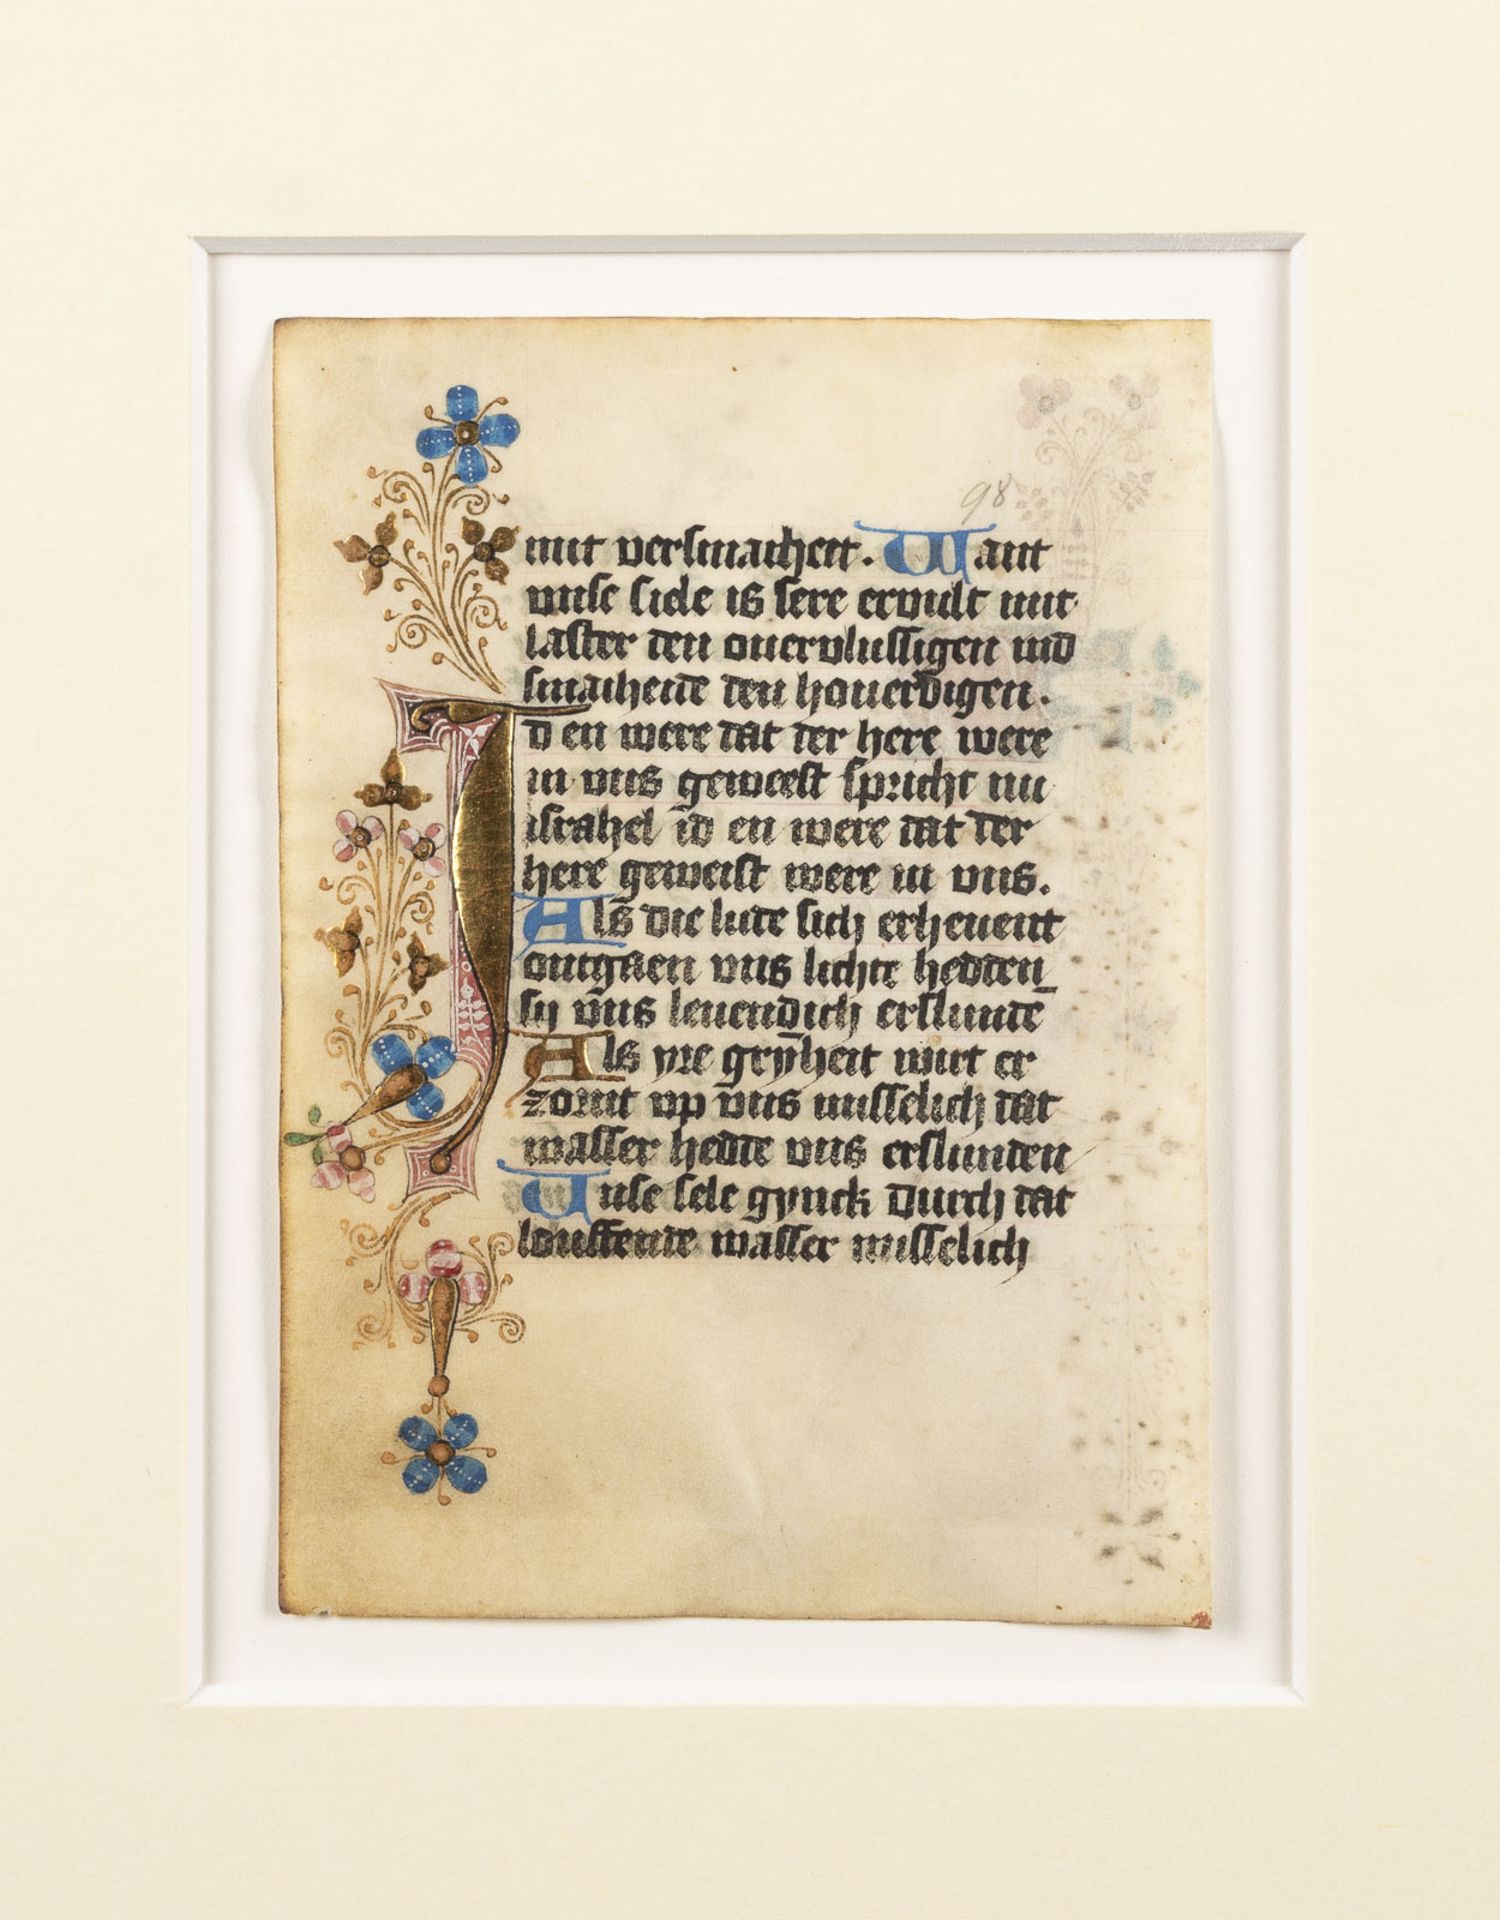 98
mit versmaiheit. Want
vnse siele is sere ervult mit
laster den overvlussigen ind
smaiheide den hoverdigen.
Id en were dat der here were
in vns geweest spricht nu
israhel id en were dat der
here geweist were in vns.
Als die lude sich erhevent
ontgaen vns lichte hedden
sy vns levendich erslunde
Als yre gryheit wirt er
zornt vp vns misselich dat
wasser hedde vns erslunden
Unse sele gynck durch dat
louffende wasser misselich